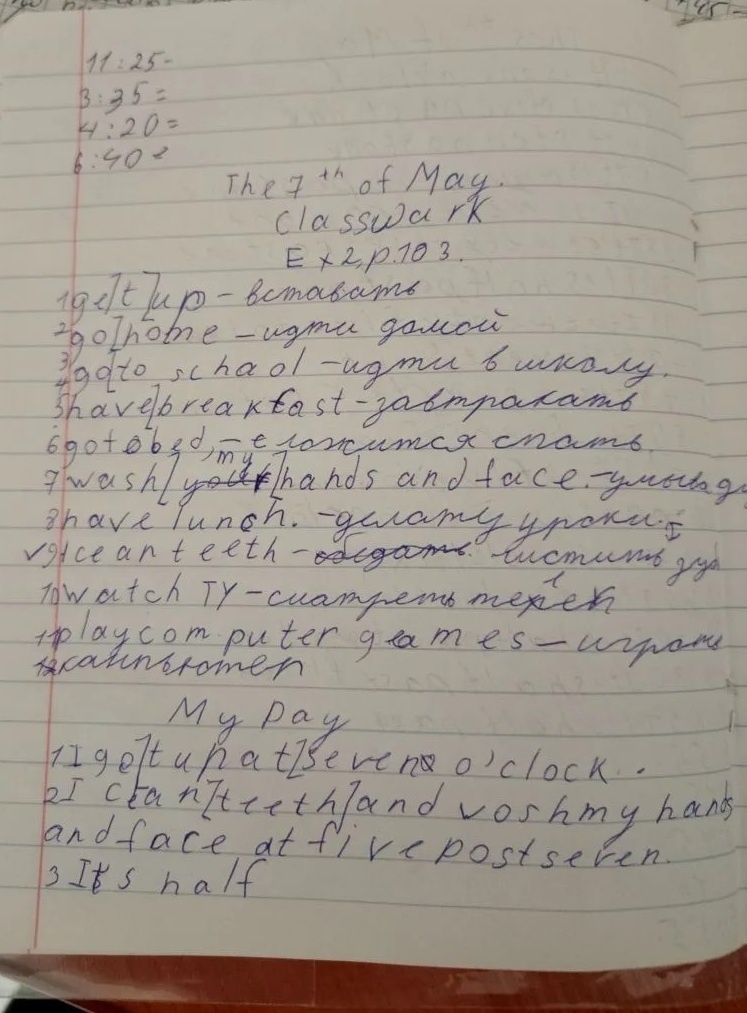 11:25-
3:35=
4:20=
6:40=
The 7th of May.
Classwark
Ex2,p.103.
1ge[t]up-вставать
2go]home-идти домой
3
4go]to schaol-идти в школу.
5have]breakfast-завтракать
6go to bed,-ложится спать.
my
7wash[your]hands and face.-умыва
8have lunch.-делату уроки.
√9Icean teeth-обедать. чистить зуб
10watch TY-сматреть телек
11playcomputer games-играть
12кампьютер
My Day
1I ge[t up at]seven o'clock.
2I cean[teeth]and voshmy hands
and face at five post seven.
3It's half